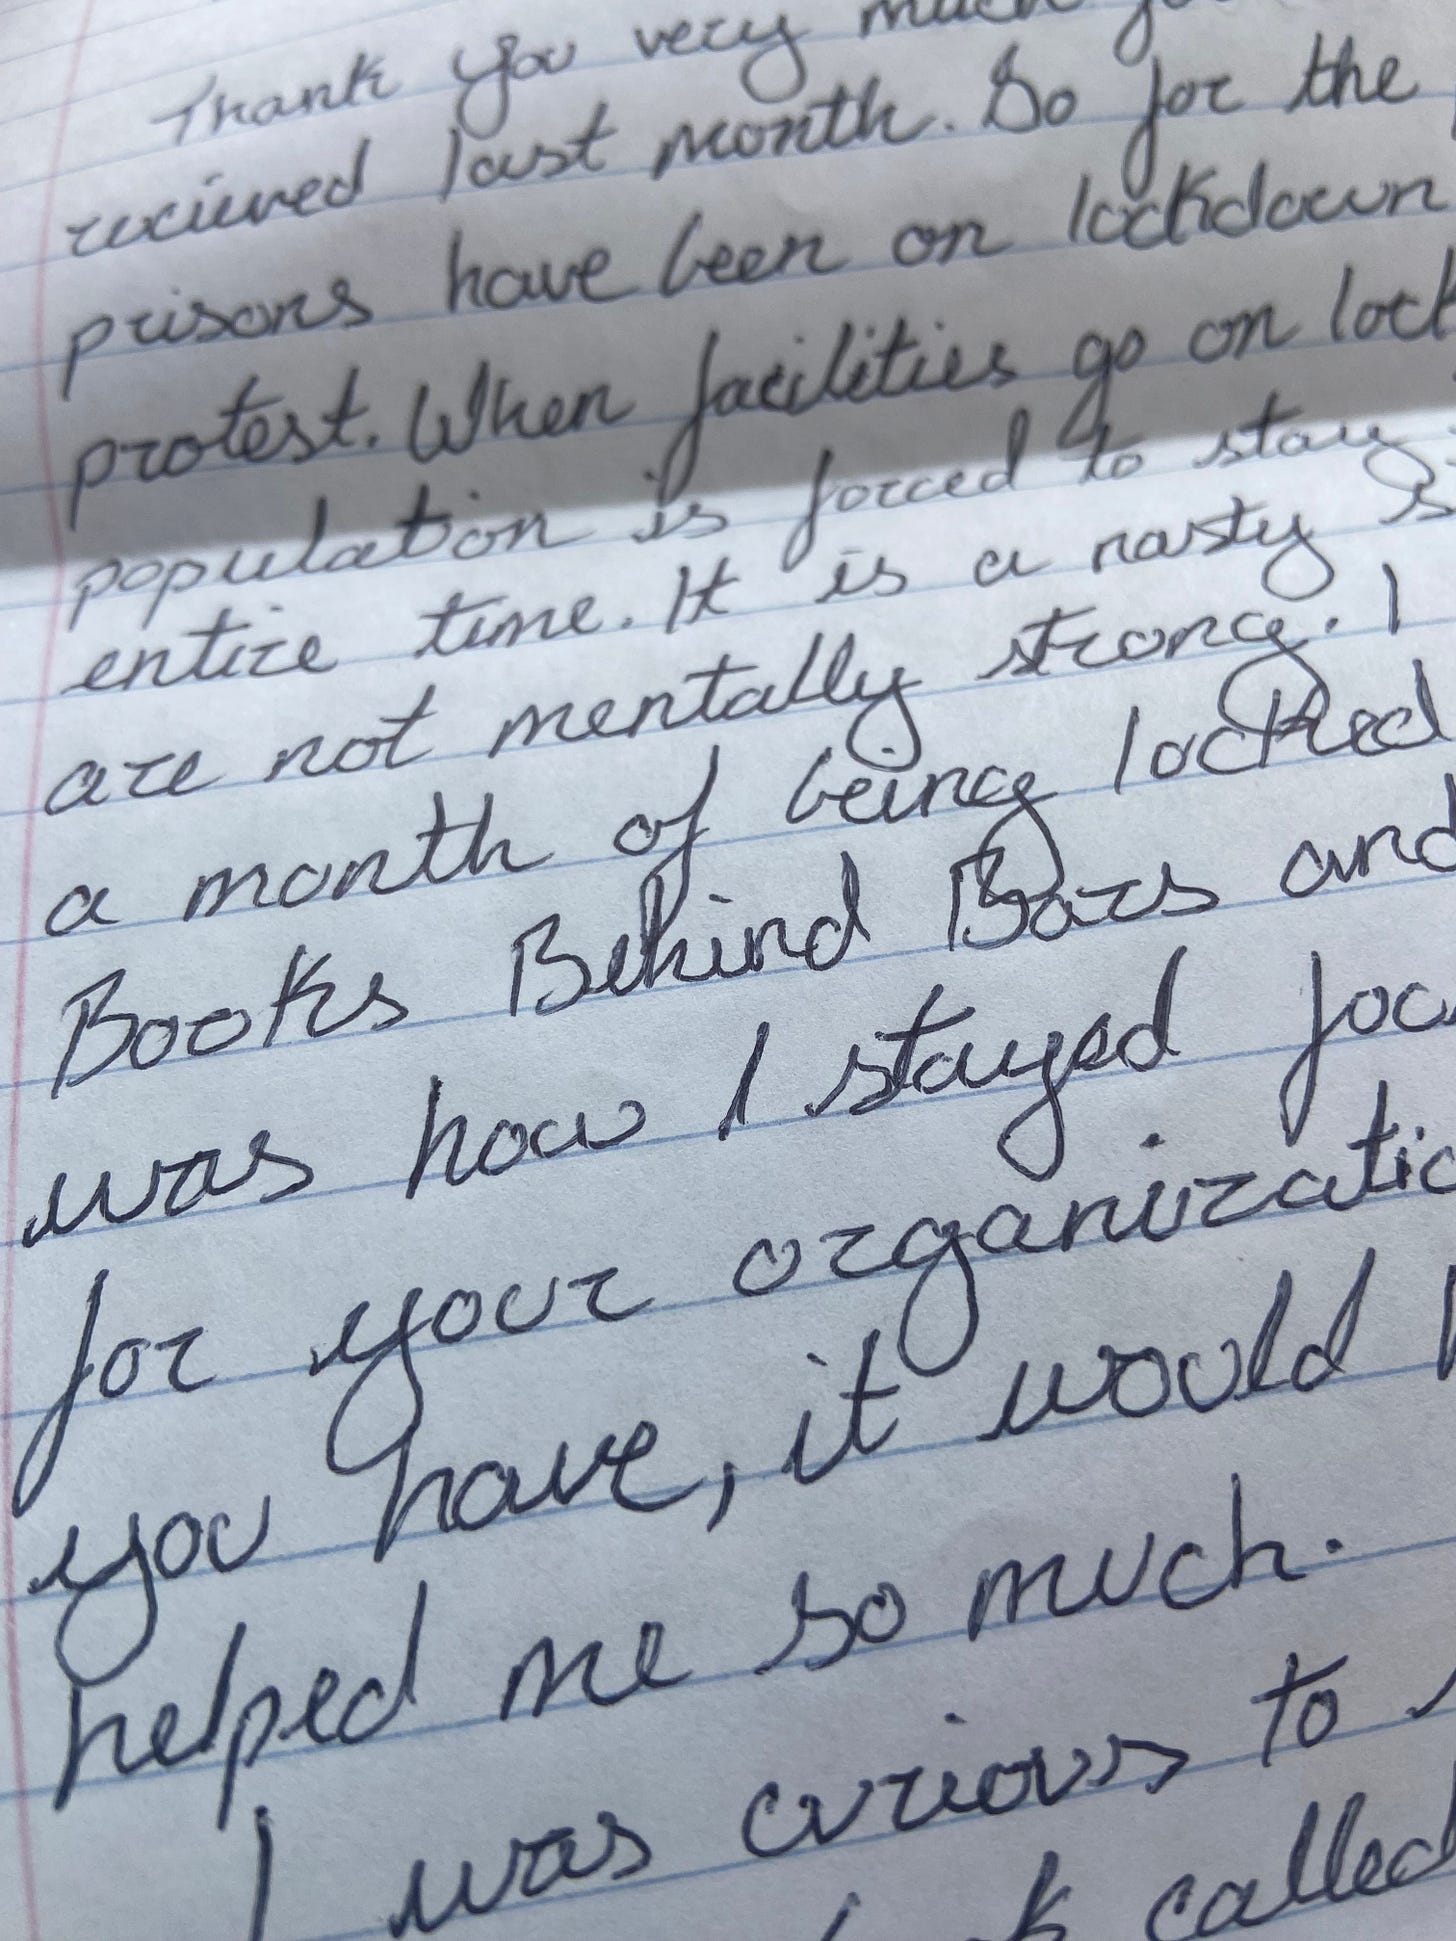 Thank you very much
recieved last month. So for the
prisons have been on lockdown
protest. When facilities go on lock
population is forced to stay
entire time. It is a nasty s
are not mentally strong. I
a month of being locked
Books Behind Bars and
was how I stayed foc
for your organizatio
you have, it would h
helped me so much.
I was curious to s
called